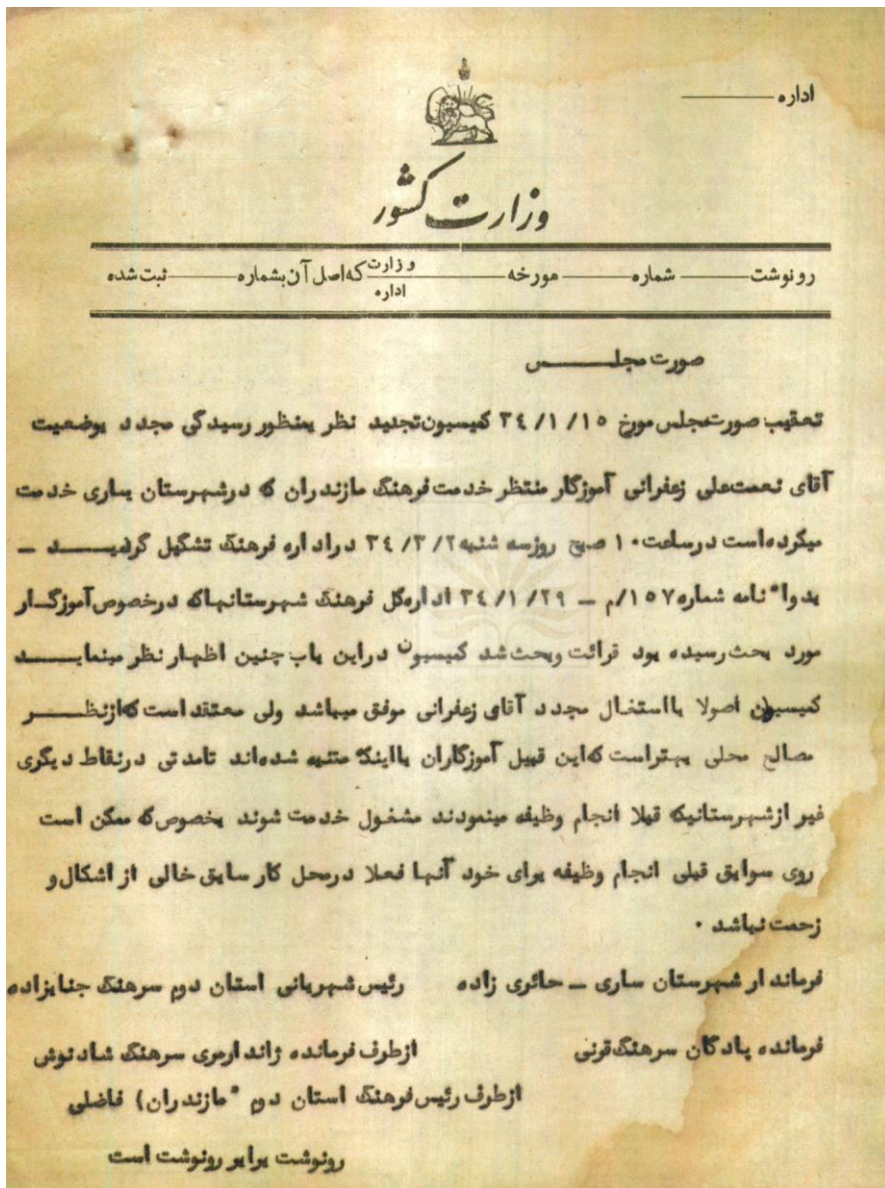 اداره
وزارت کشور
رونوشت شماره مورخه وزارت اداره که اصل آن بشماره ثبت شده
صورت مجلس
تعقیب صورتمجلس مورخ ۱۵/ ۱/ ۳٤ کمیسیون تجدید نظر بمنظور رسیدگی مجدد بوضعیت
آقای نعمت‌علی زعفرانی آموزگار منتظر خدمت فرهنگ مازندران که درشهرستان ساری خدمت
میکرده‌است درساعت ۱۰ صبح روزسه شنبه ۲/ ۳/ ۳٤ دراداره فرهنگ تشکیل گردیـــد ـ
بدوا" نامه شماره ۱۵۷/م ـ ۲۹/ ۱/ ۳٤ اداره‌کل فرهنگ شهرستانهاکه درخصوص آموزگـار
مورد بحث رسیده بود قرائت وبحث شد کمیسیون دراین باب چنین اظهار نظر مینمایـــد
کمیسیون اصولا بااستغال مجدد آقای زعفرانی موفق میباشد ولی معتقد است که‌ازنظـــر
مصالح محلی بهتراست که‌این قبیل آموزگاران بااینکه متنبه شده‌اند تامدتی درنقاط دیگری
غیر ازشهرستانیکه قبلا انجام وظیفه مینمودند مشغول خدمت شوند بخصوص که ممکن است
روی سوابق قبلی انجام وظیفه برای خود آنها فعلا درمحل کار سابق خالی از اشکال و
زحمت نباشد ۰
فرماندار شهرستان ساری ـ حائری زاده رئیس شهربانی استان دوم سرهنگ جنابزاده
فرمانده پادگان سرهنگ قرنی ازطرف فرمانده ژاندارمری سرهنگ شادنوش
ازطرف رئیس فرهنگ استان دوم "مازندران) فاضلی
رونوشت برابر رونوشت است